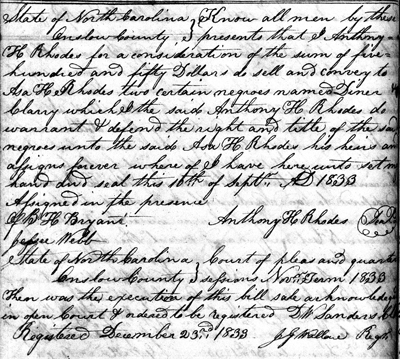 State of North Carolina } Know all men by these
Onslow County } presents that I Anthony
H Rhodes for a consideration of the sum of five
hundred and fifty Dollars do sell and convey to
Asa H Rhodes two certain negroes named Diner
Clarry which I the said Anthony H Rhodes do
warrant & defend the right and title of the said
negroes unto the said Asa H Rhodes his heirs an
assigns forever where of I have here unto set m
hand and seal this 16th of Septr. AD 1833
Assigned in the presence
H Bryant Anthony H Rhodes
Jesse Webb
State of North Carolina } Court of pleas and quart
Onslow County } sessions Novr Term 1833
Then was the execution of this bill sale acknowledge
in open Court & ordered to be registered D W Sanders
Registered December 23rd 1833 Regtr